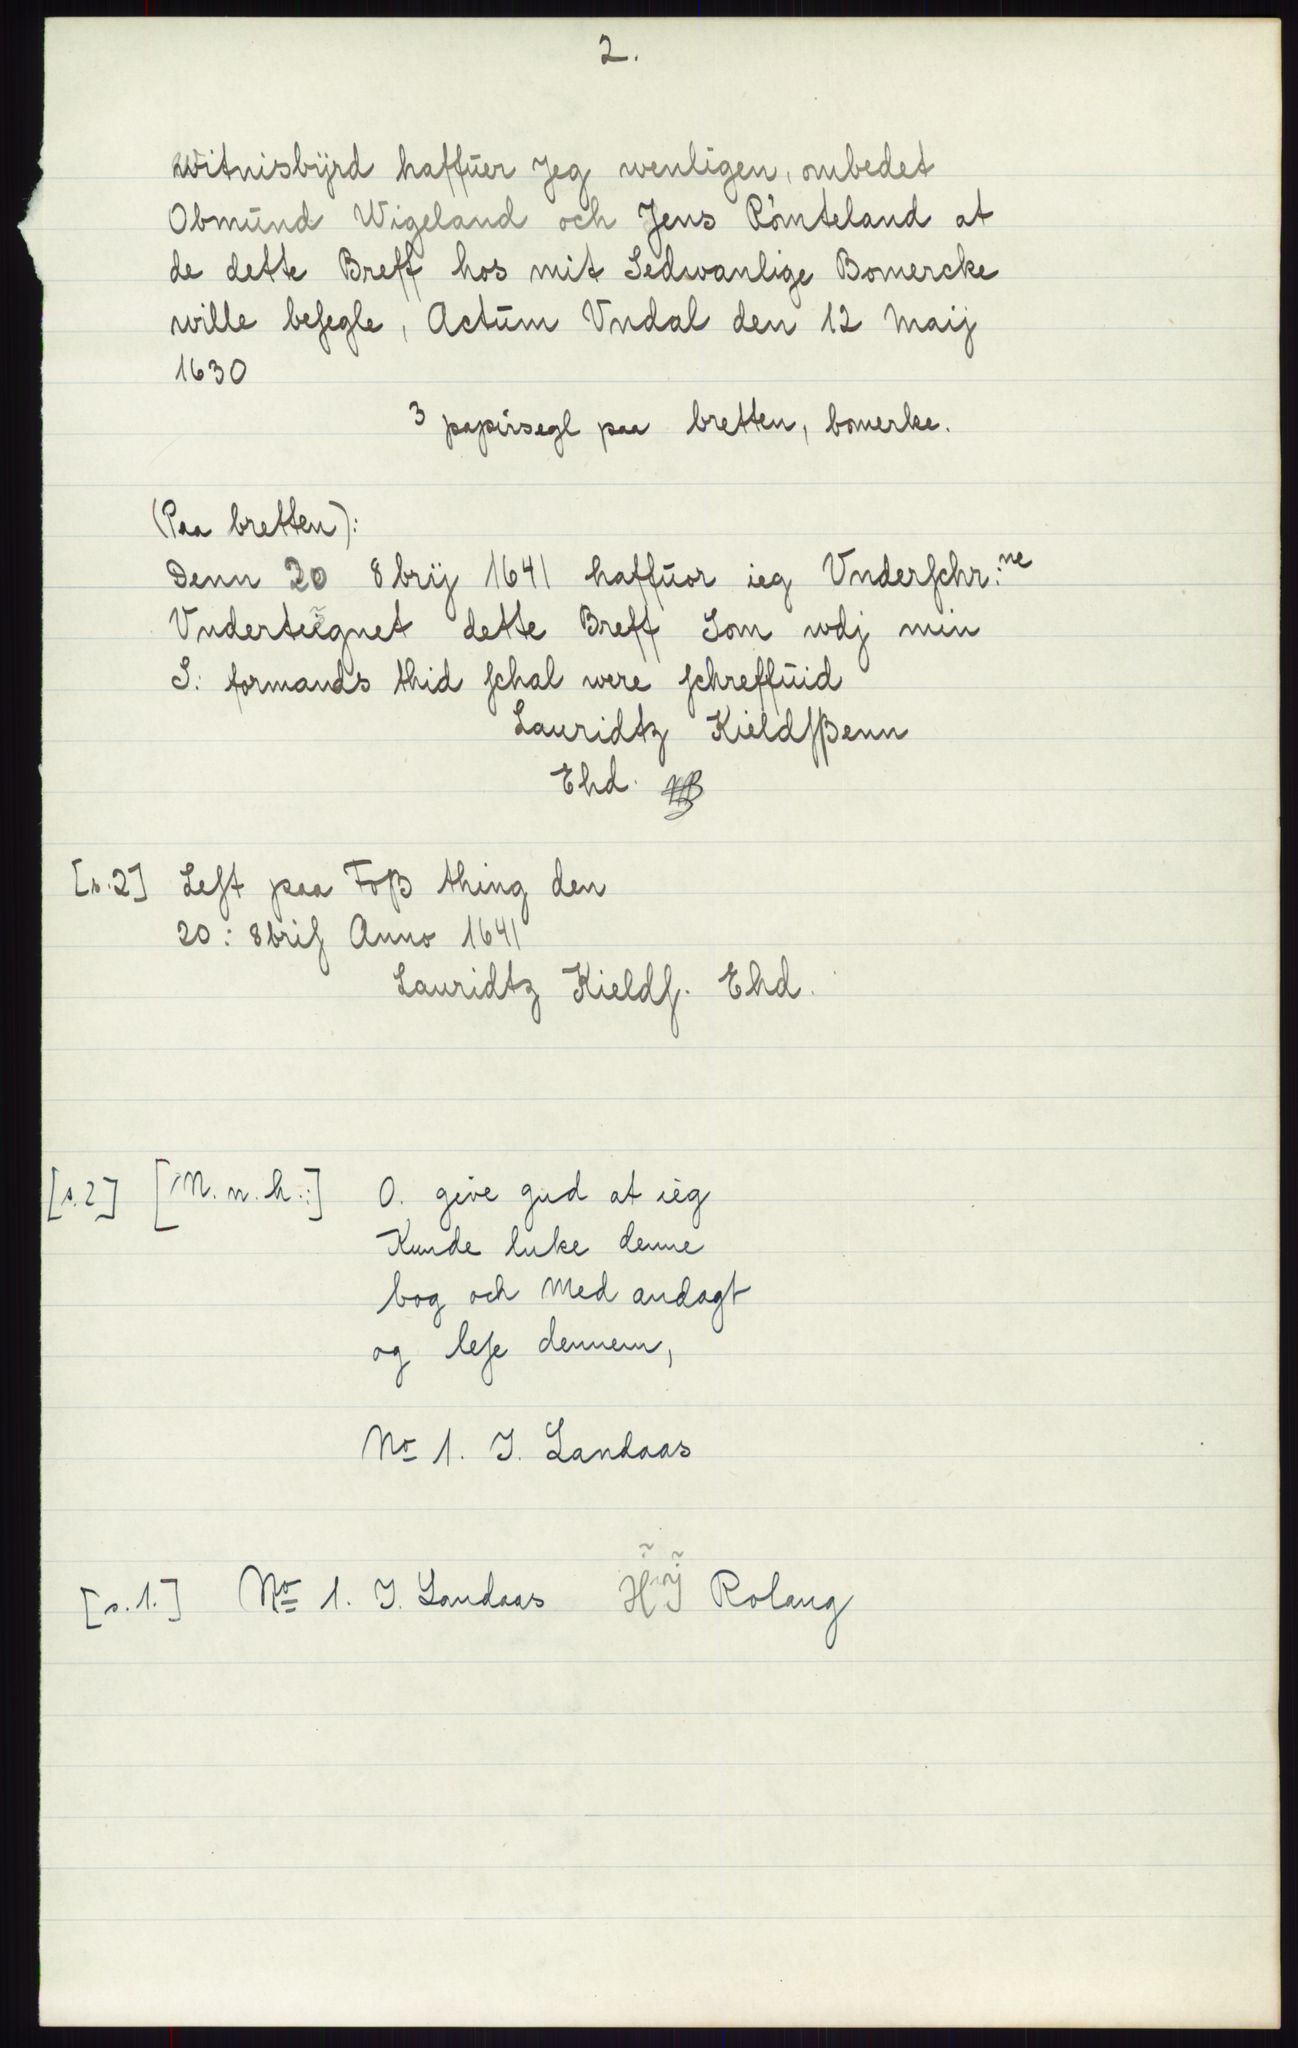 2.
witnisbÿrd haffŭer Jeg wenligen, ombedet
Obmŭnd Wigeland och Jens Römteland at
de dette Breff hos mit Sedwanlige Bomercke
wille beſegle, Actŭm Vndal den 12 Maij
1630
3 papirsegl paa bretten, bomerke.
(Paa bretten):
Denn 20 8brij 1641 haffŭor ieg Vnderſchr:ne
Vnderteignet dette Breff Som wdj min
S: formands thid ſchal were ſchreffŭid
Lauridtz Kieldſßenn
Ehd.
[s.2] Leſt paa Foß thing den
20: 8briſ Anno 1641
Lauridtz Kieldſ. Ehd.
[s.2] [M.n.h.:] O. give gud at ieg
Kunde luke denne
bog och Med andagt
og leſe dennem,
No 1. J. Landaas
[s.1.] No 1. J. Landaas Rolang